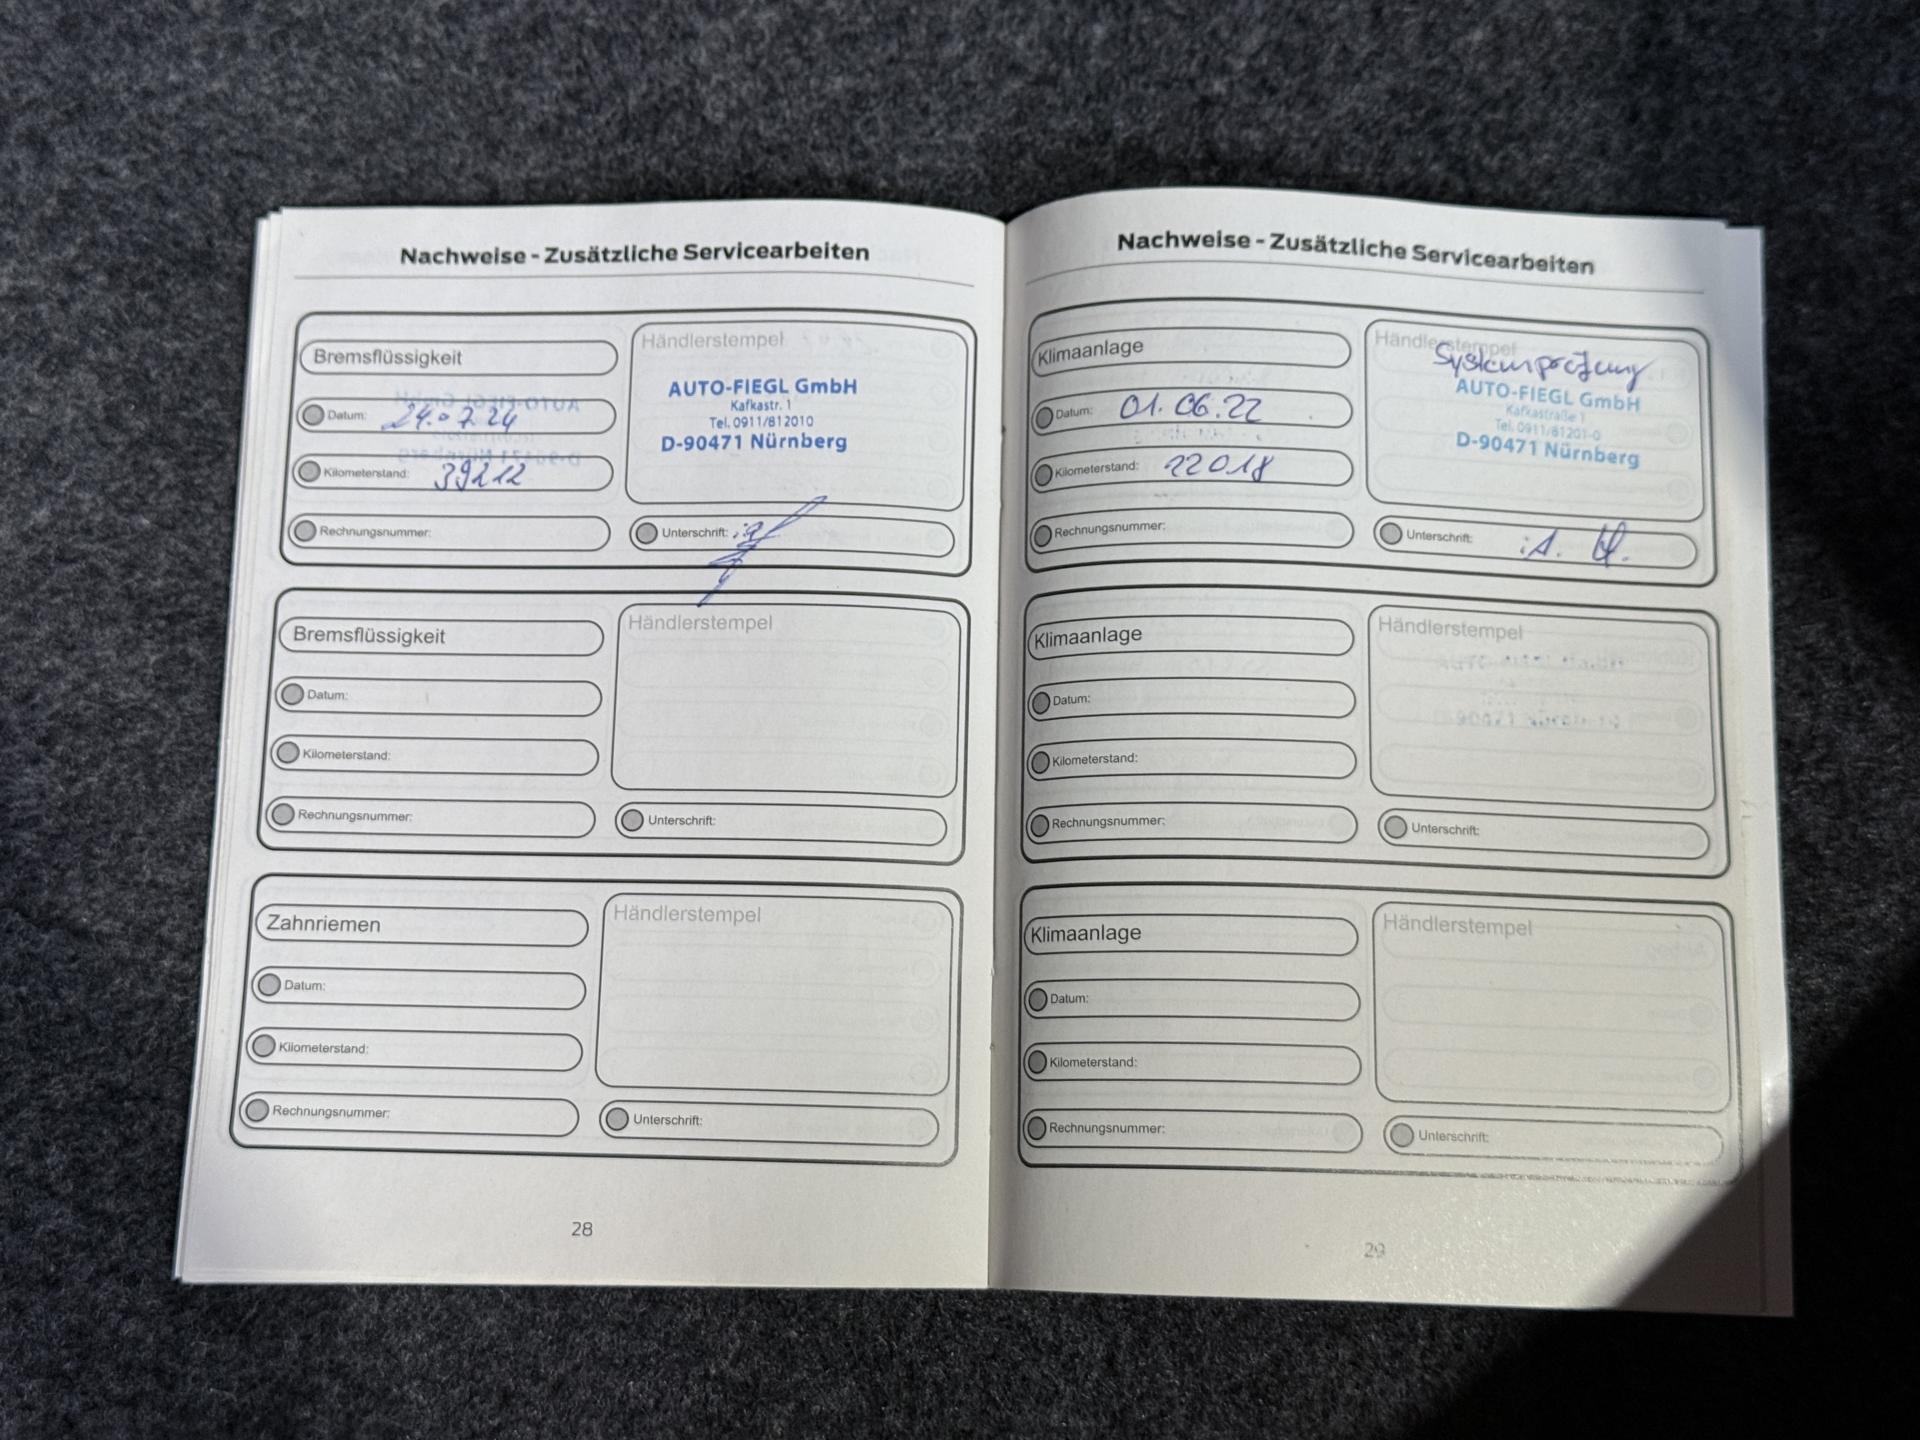 Nachweise - Zusätzliche Servicearbeiten
Bremsflüssigkeit
Datum: 24.07.24
Kilometerstand: 39212
Rechnungsnummer:
Händlerstempel
AUTO-FIEGL GmbH
Kafkastr. 1
Tel. 0911/812010
D-90471 Nürnberg
Unterschrift:
Bremsflüssigkeit
Datum:
Kilometerstand:
Rechnungsnummer:
Händlerstempel
Unterschrift:
Zahnriemen
Datum:
Kilometerstand:
Rechnungsnummer:
Händlerstempel
Unterschrift:
28
Nachweise - Zusätzliche Servicearbeiten
Klimaanlage
Datum: 01.06.22
Kilometerstand: 22018
Rechnungsnummer:
Händlerstempel
Systemprüfung
AUTO-FIEGL GmbH
Kafkastraße 1
Tel. 0911/81201-0
D-90471 Nürnberg
Unterschrift: i.A.
Klimaanlage
Datum:
Kilometerstand:
Rechnungsnummer:
Händlerstempel
Unterschrift:
Klimaanlage
Datum:
Kilometerstand:
Rechnungsnummer:
Händlerstempel
Unterschrift:
29